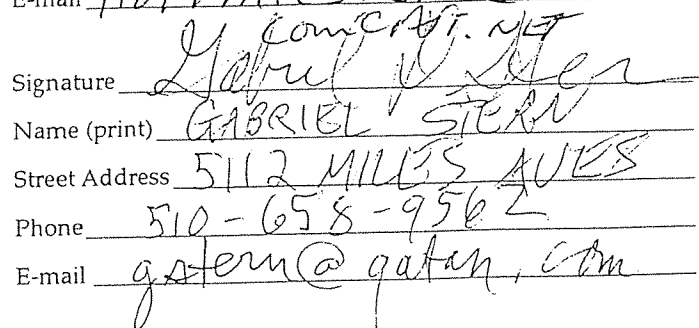 E-mail
COMCAST.NET
Signature Gabriel Stern
Name (print) GABRIEL STERN
Street Address 5112 MILES AVES
Phone 510-658-9562
E-mail gstern@qatan.com